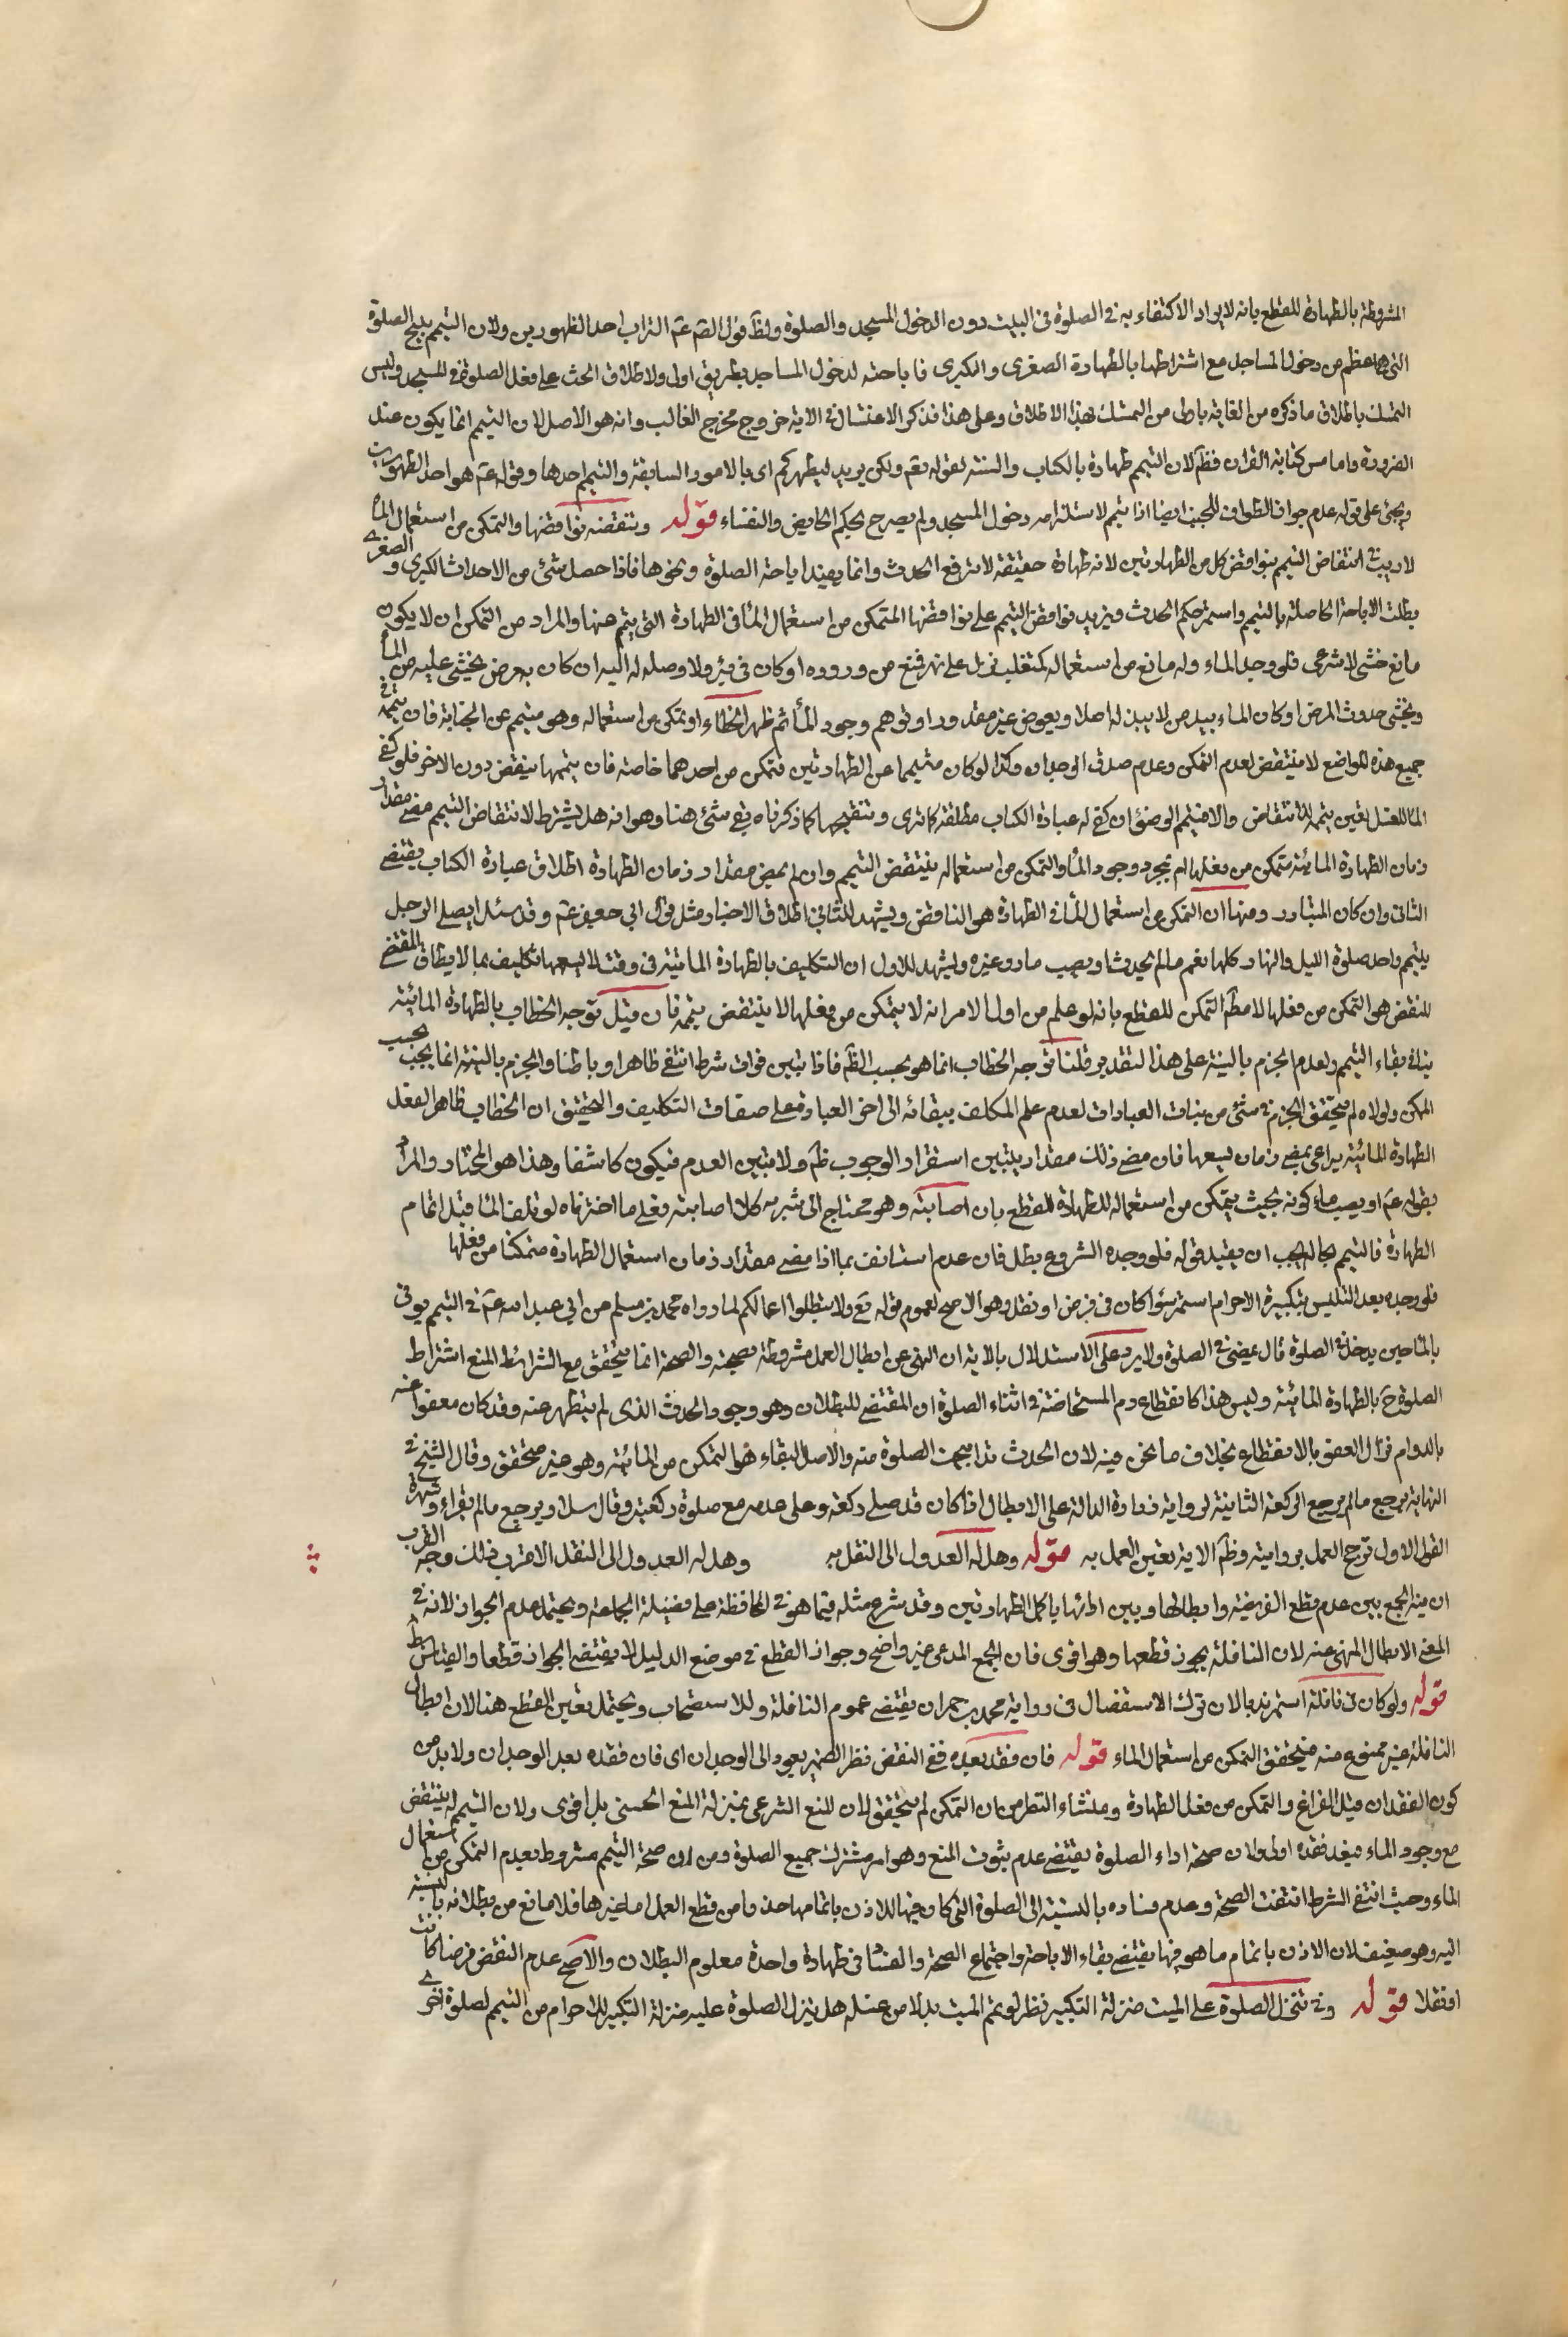 المشروطة بالطهارة للقطع بانه لا يراد الاكتفاء به في الصلوة في البيت دون الدخول المسجد والصلوة ولظ قول القم عم التراب احد الطهورين ولان التيمم يبيح الصلوة
التي هي اعظم من دخول المساجد مع اشتراطها بالطهارة الصغرى والكبرى فاباحته لدخول المساجد بطريق اولى ولاطلاق الحث على فعل الصلوة في المسجد وليس
التمسك باطلاق ما ذكره من الغاية باولى من التمسك بهذا الاطلاق وعلى هذا فذكر الاغتسال في الاية خروج مخرج الغالب وانه هو الاصل لان التيمم انما يكون عند
الضرورة واما مس كتابة القران فظم لان التيمم طهارة بالكتاب والسنة لقوله تعم ولكن يريد ليطهركم اي بالامور السابقة والتيمم احدها وقوله عم هو احد الطهورين
ويجئ على قوله عدم جواز الطواف للجنب ايضا اذا تيمم لاستلزامه دخول المسجد ولم يصرح بحكم الحايض والنفساء قوله وينقضه نواقضها والتمكن من استعمال الماء
لا ريب في انتقاض التيمم بنواقض كل من الطهارتين لانه طهارة حقيقة لا ترفع الحدث وانما يفيد اباحة الصلوة ونحوها فاذا حصل شئ من الاحداث الكبرى والصغرى
بطلت الاباحة الحاصلة بالتيمم واستمر حكم الحدث ويزيد نواقض التيمم على نواقضها المتمكن من استعمال الماء في الطهارة التي يتيمم عنها والمراد من التمكن ان لا يكون
مانع حسي لا شرعي فلو وجد الماء وله مانع من استعماله كمتغلب نزل على نهر فمنع من وروده او كان في بئر ولا وصلة له اليه او كان به مرض يخشى عليه من الماء
ويخشى حدوث المرض او كان الماء بيد من لا يبذله اصلا وبعوض غير مقدور او توهم وجود الماء ثم ظهر الخطاء او تمكن من استعماله وهو متيمم عن الجنابة فان تيممه في
جميع هذه المواضع لا ينتقض لعدم التمكن وعدم صدق الوجدان وكذا لو كان متيمما عن الطهارتين فتمكن من احدهما خاصة فان تيممها ينقض دون الاخر فلو كفى
الماء للغسل تعين تيممه للانتقاض والا فتيمم الوضوء ان كفى له عبارة الكتاب مطلقة كما ترى وتنقيحها كما ذكرناه بقي شئ هنا وهو انه هل يشترط لانتقاض التيمم مضي مقدار
زمان الطهارة المائية متمكن من فعلها ام بمجرد وجود الماء والتمكن من استعماله ينتقض التيمم وان لم يمض مقدار زمان الطهارة اطلاق عبارة الكتاب يقتضي
الثاني وان كان المتبادر ومنها ان التمكن من استعمال الماء في الطهارة هو الناقض ويشهد للثاني اطلاق الاخبار مثل قول ابي جعفر عم وقد سئل ايصلي الرجل
بتيمم واحد صلوة الليل والنهار كلها نعم ما لم يحدث او يصيب ماء وغيره ويشهد للاول ان التكليف بالطهارة المائية في وقت لا يسعها تكليف بما لا يطاق المقتضي
للنقض هو التمكن من فعلها لا مطم التمكن للقطع بانه لو علم من اول الامر انه لا يتمكن من فعلها لا ينتقض تيممه فان قيل توجه الخطاب بالطهارة المائية
ينافي بقاء التيمم ولعدم الجزم بالنية على هذا التقدير قلنا توجه الخطاب انما هو بحسب الظم فاذا تبين فوات شرط انتفى ظاهرا وباطنا والجزم بالنية انما يجب بحسب
الممكن ولولاه لم يتحقق الجزم في شئ من نيات العبادات لعدم علم المكلف ببقائه الى اخر العبادة على صفات التكليف والتحقيق ان الخطاب ظاهرا بفعل
الطهارة المائية يراعى بمضي زمان يسعها فان مضى ذلك مقدار يتبين استقرار الوجوب ظم ولا متبين العدم فيكون كاشفا وهذا هو المختار والمراد
بقوله عم او يصيب ماء كونه بحيث يتمكن من استعماله للطهارة للقطع بان اصابته وهو محتاج الى شربه كلا اصابته فعلى ما اخترناه لو تلف الماء قبل اتمام
الطهارة فالتيمم بحاله يجب ان يقيد قوله فلو وجده الشروع بطل فان عدم استانف بما اذا مضى مقدار زمان استعمال الطهارة متمكنا من فعلها
فلو وجده بعد التلبس بتكبيرة الاحرام استمر سواء كان في فرض او نفل وهو الاصح لعموم قوله تع ولا تبطلوا اعمالكم لما رواه محمد بن مسلم عن ابي عبد الله عم في التيمم يوتى
بالماء حين يدخل في الصلوة قال يمضي في الصلوة ولا يرد على الاستدلال بالاية ان النهي عن ابطال العمل مشروطة بصحته والصحة انما يتحقق مع الشرائط المنع اشتراط
الصلوة ح بالطهارة المائية وليس هذا كانقطاع دم المستحاضة في اثناء الصلوة ان المقتضي للبطلان وهو وجود الحدث الذي لم يتطهر عنه وقد كان معفوا عنه
بالدوام فزال العفو بالانقطاع بخلاف ما نحن فيه لان الحدث قد ابيحت الصلوة منه والاصل البقاء هو التمكن من المائية وهو غير متحقق وقال الشيخ في
النهاية يرجع ما لم يركع الركعة الثانية لرواية زرارة الدالة على الابطال اذا كان قد صلى ركعة وعلى عدمه مع صلوة ركعتين وقال سلار يرجع ما لم يقراء وشهرة
القول الاول ترجح العمل بروايته وظم الاية يعين العمل به قوله وهل له العدول الى النفل به وهل له العدول الى النفل الاقرب ذلك وجه القرب
ان فيه الجمع بين عدم قطع الفريضة وابطالها وبين ادائها باكمل الطهارتين وقد شرع مثله فيما هو في المحافظة على فضيلة الجماعة ويحتمل عدم الجواز لانه في
المعنى الابطال المنهي عنه لان النافلة يجوز قطعها وهو اقوى فان الجمع المدعى غير واضح وجواز القطع في موضع الدليل لا يقتضي الجواز قطعا والقياس بط
قوله ولو كان في نافلة استمر ندبا لان ترك الاستفصال في رواية محمد بن حمران يقتضي عموم النافلة وللاستصحاب ويحتمل تعين القطع هنا لان ابطال
النافلة غير ممنوع منه فيتحقق التمكن من استعمال الماء قوله فان فقد بعده ففي النقض نظر الضمير يعود الى الوجدان اي فان فقده بعد الوجدان ولا بد من
كون الفقدان قبل الفراغ والتمكن من فعل الطهارة ومنشاء النظر من ان التمكن لم يتحقق لان المنع الشرعي بمنزلة المنع الحسي بل اقوى ولان التيمم لم ينتقض
مع وجود الماء فبعد فقده اولى ولان صحة اداء الصلوة يقتضي عدم ثبوت المنع وهو امر مشترك جميع الصلوة ومن ان صحة التيمم مشروط بعدم التمكن من استعمال
الماء وحيث انتفى الشرط انتفت الصحة وعدم فساده بالنسبة الى الصلوة التي كان فيها للاذن باتمامها حذرا من قطع العمل اما غيرها فلا مانع من بطلانه بالنسبة
اليه وهو ضعيف لان الاذن باتمام ما هو فيها يقتضي بقاء الاباحة واجتماع الصحة والفساد في طهارة واحدة معلوم البطلان والاصح عدم النقض فرضا كانت
او نفلا قوله وفي تنزل الصلوة على الميت منزلة التكبير نظر لو يمم الميت بدلا من غسله هل ينزل الصلوة عليه منزلة التكبير للاحرام من التيمم لصلوة اخرى